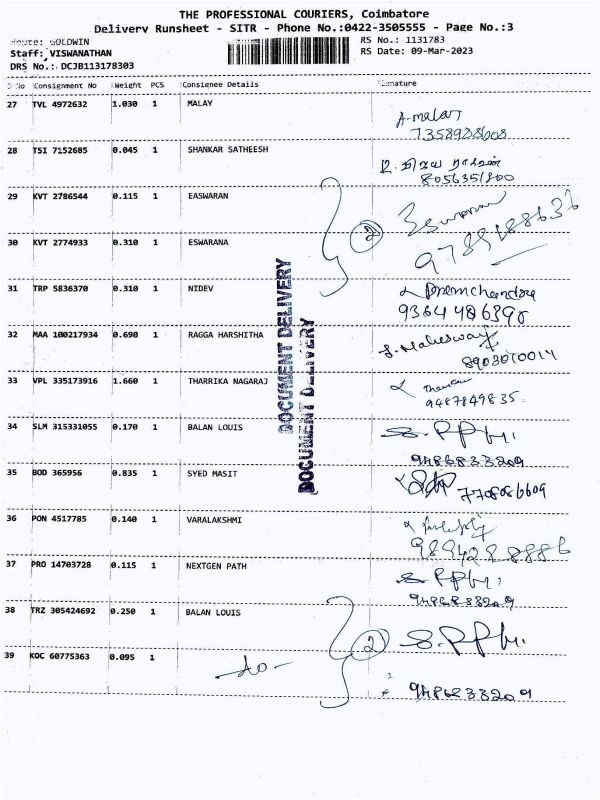 THE PROFESSIONAL COURIERS, Coimbatore
Delivery Runsheet - SITR - Phone No.:0422-3505555 - Page No.:3
Route: GOLDWIN
RS No.: 1131783
Staff: VISWANATHAN
RS Date: 09-Mar-2023
DRS No.: DCJB113178303
No Consignment No Weight PCS Consignee Details Signature
27 TVL 4972632 1.030 1 MALAY A. malar
7358928008
28 TSI 7152685 0.045 1 SHANKAR SATHEESH
8056351800
29 KVT 2786544 0.115 1 EASWARAN
2
30 KVT 2774933 0.310 1 ESWARANA
31 TRP 5836370 0.310 1 NIDEV Premchandra
9364486390
32 MAA 100217934 0.690 1 RAGGA HARSHITHA S. Maheswary
8903010014
33 VPL 335173916 1.660 1 THARRIKA NAGARAJ
9487849835
34 SLM 315331055 0.170 1 BALAN LOUIS
9486833209
35 BOD 365956 0.835 1 SYED MASIT 7708086609
36 PON 4517785 0.140 1 VARALAKSHMI
9894288886
37 PRO 14703728 0.115 1 NEXTGEN PATH
9486833209
38 TRZ 305424692 0.250 1 BALAN LOUIS
2
39 KOC 60775363 0.095 1 -do-
9486833209
DOCUMENT DELIVERY
DOCUMENT DELIVERY